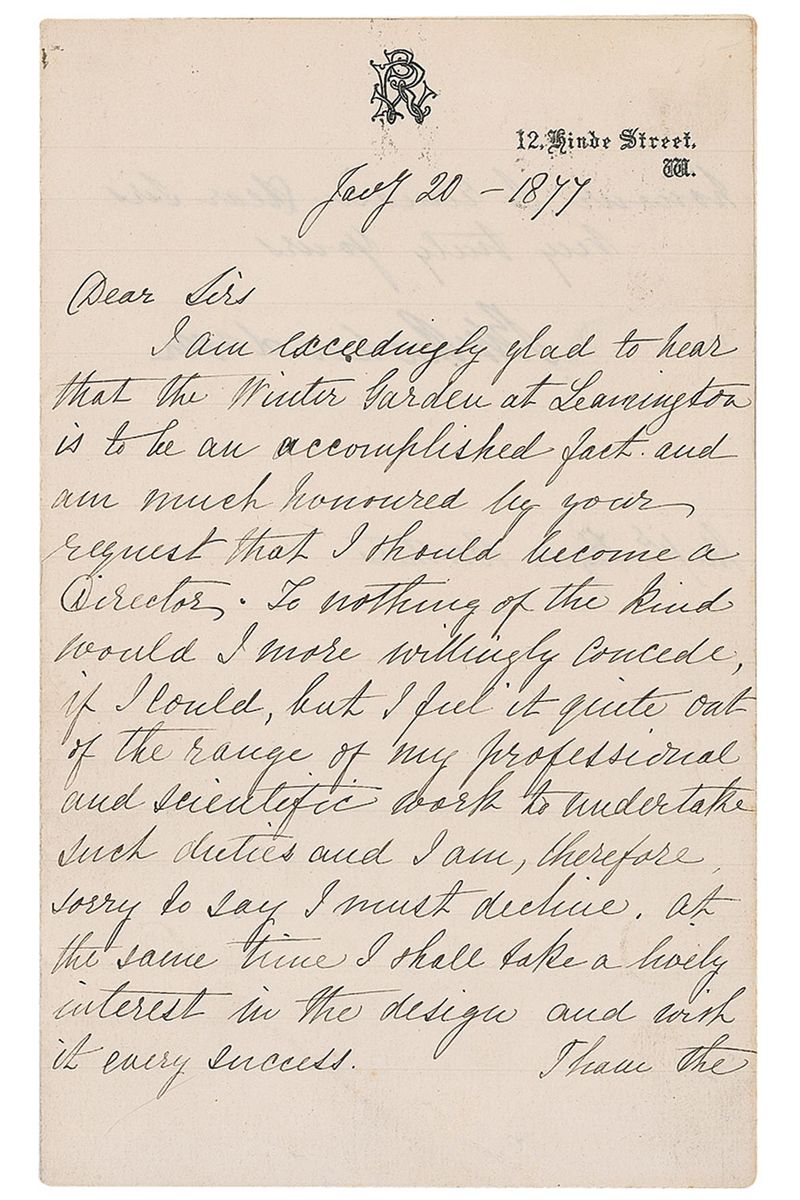 12, Hinde Street,
W.
Jany 20 - 1877
Dear Sirs
I am exceedingly glad to hear
that the Winter Garden at Leamington
is to be an accomplished fact. and
am much honoured by your
request that I should become a
Director. To nothing of the kind
would I more willingly concede,
if I could, but I feel it quite out
of the range of my professional
and scientific work to undertake
such duties and I am, therefore,
sorry to say I must decline. At
the same time I shall take a lively
interest in the design and wish
it every success. I have the